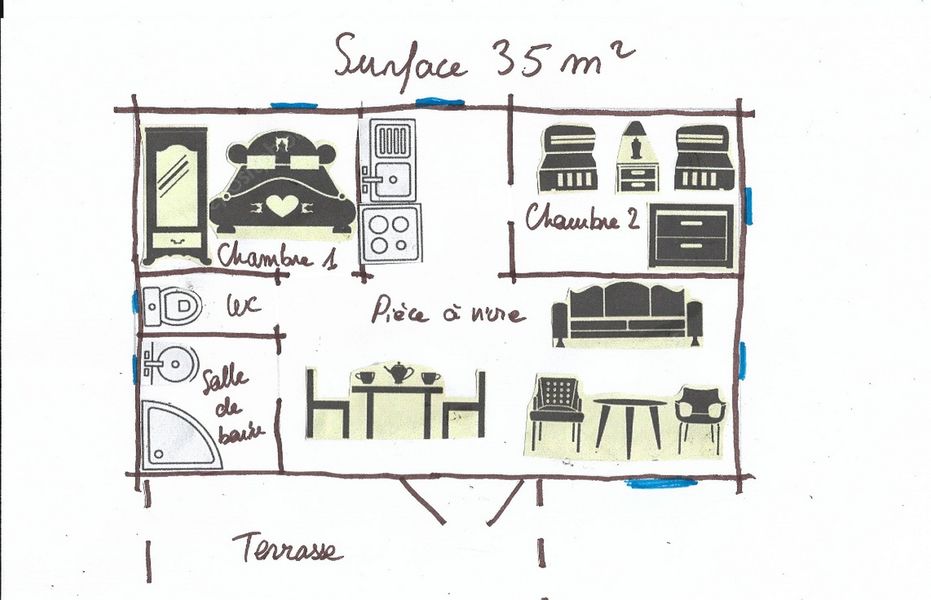 Surface 35 m²
Chambre 2
Chambre 1
WC
Pièce à vivre
Salle
de
bain
Terrasse